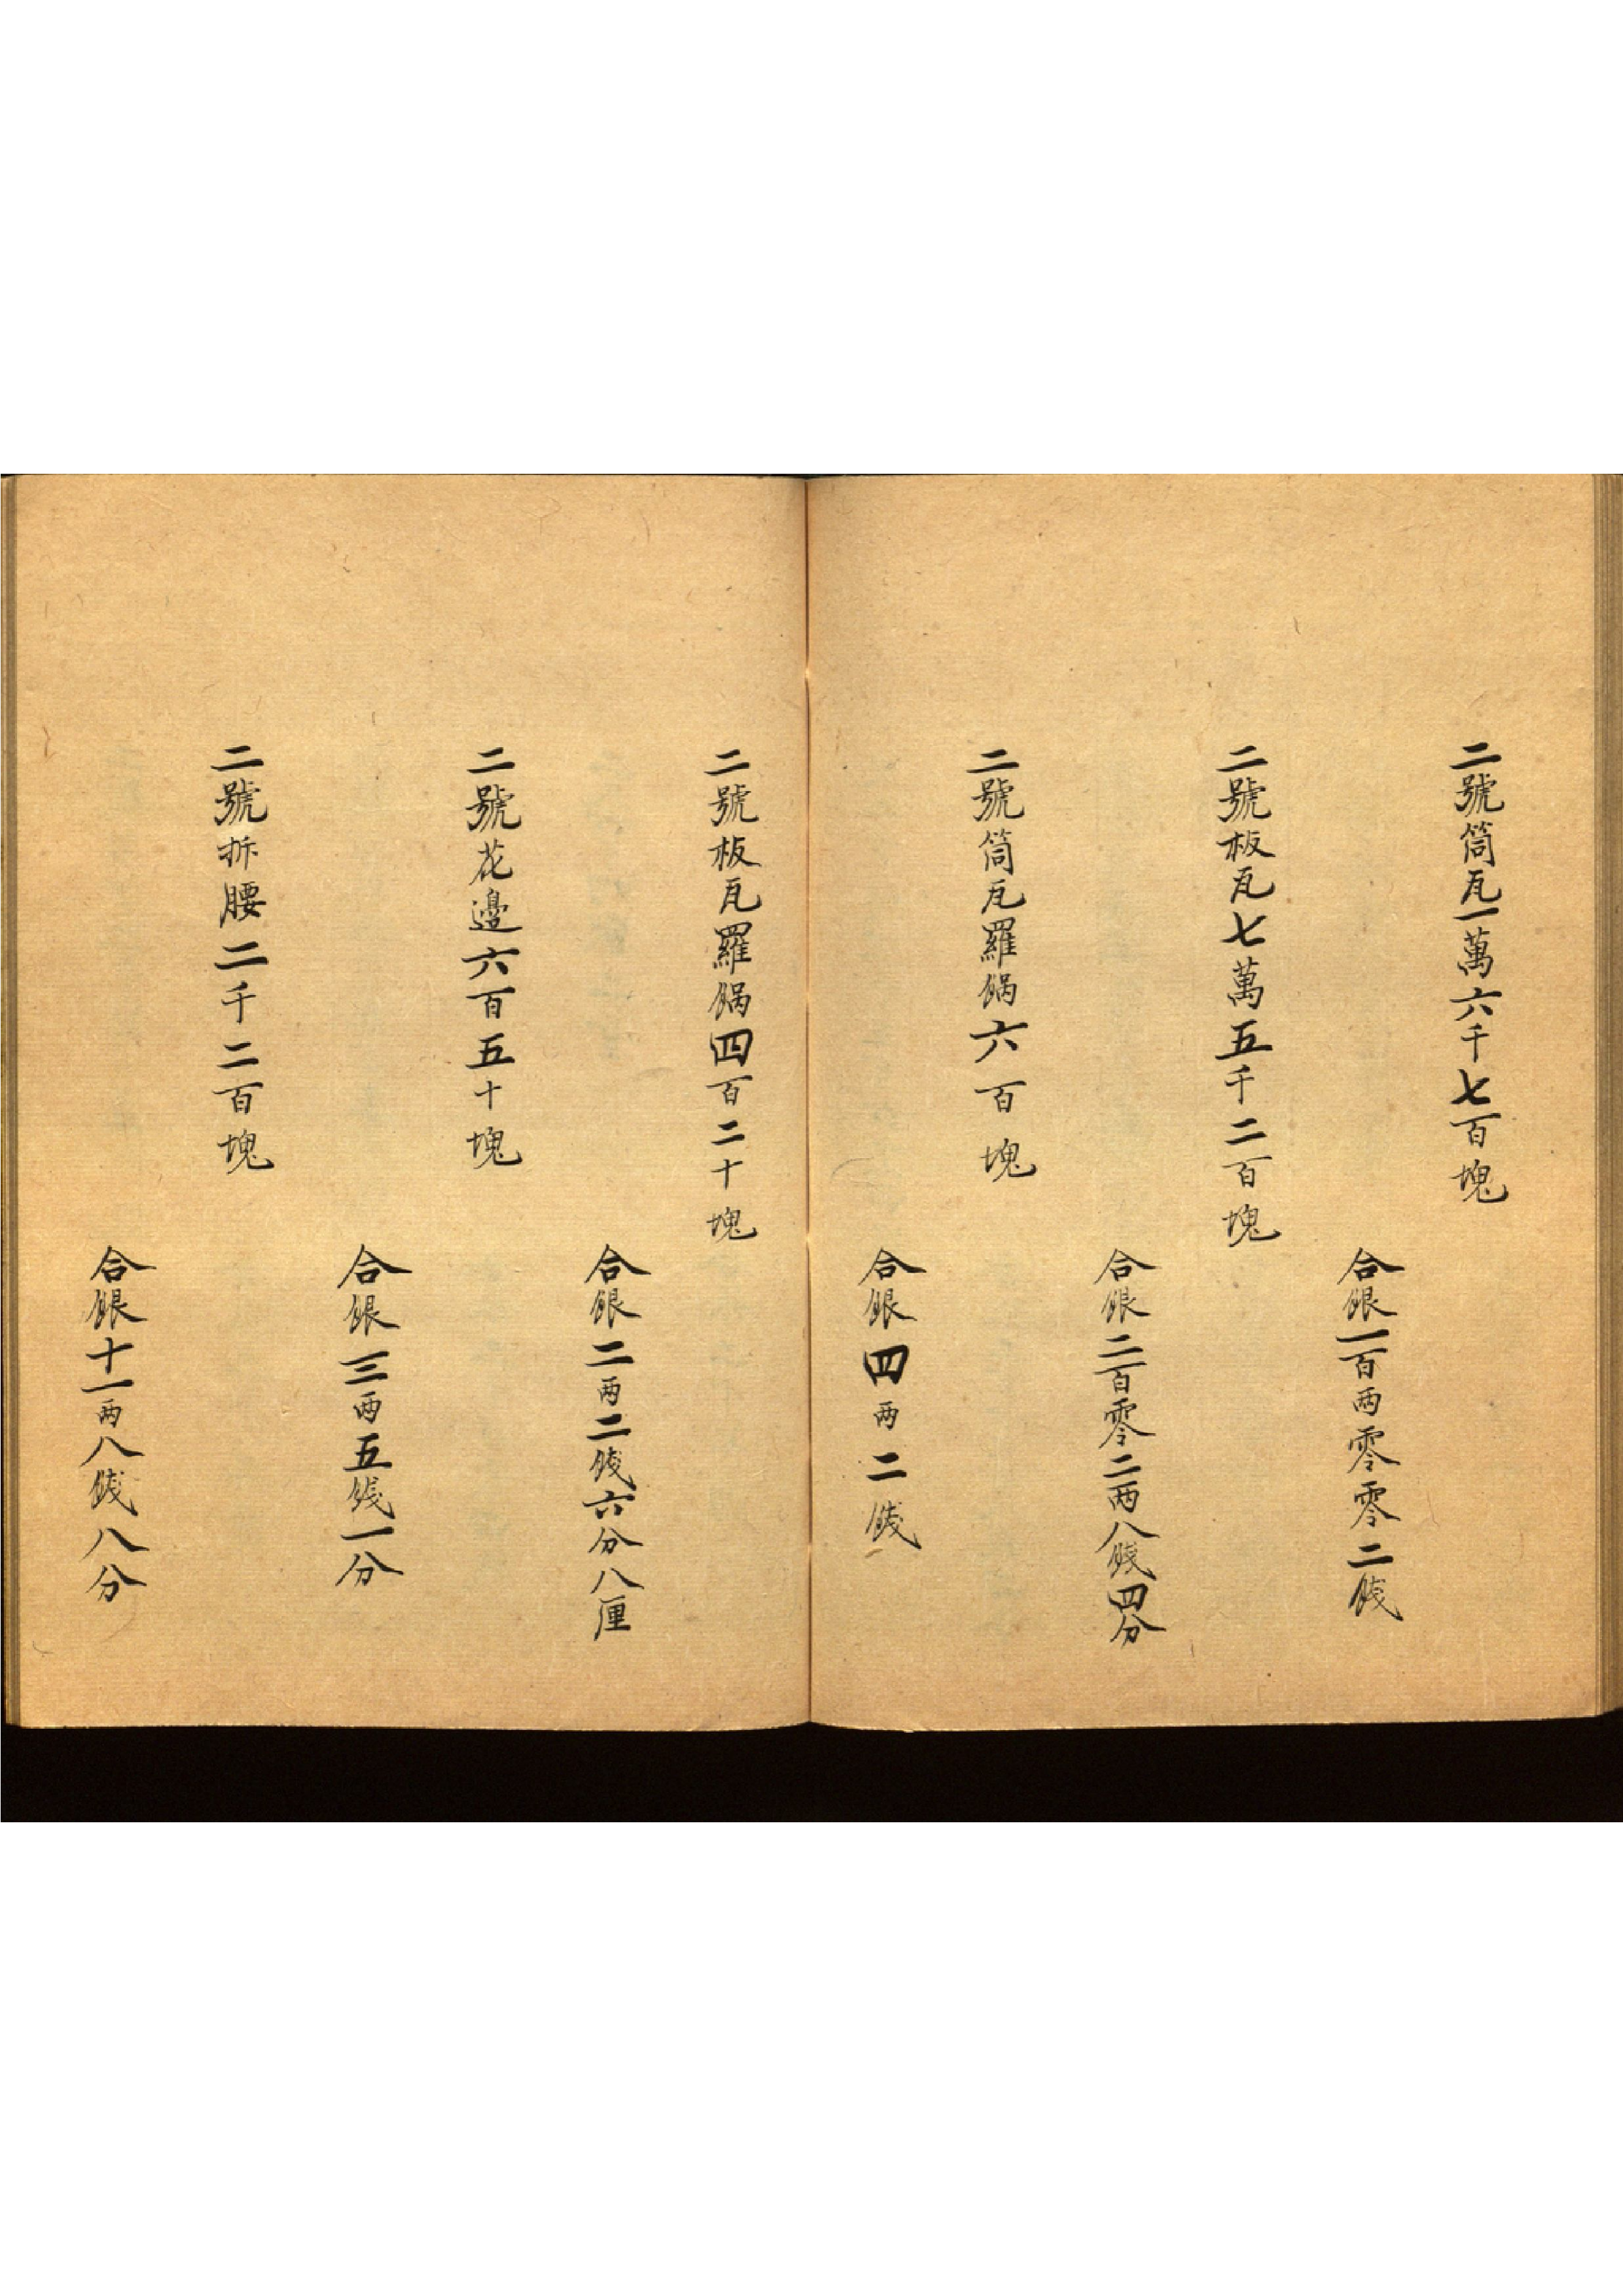 二號筒瓦一萬六千七百塊
合銀一百两零零二錢
二號板瓦七萬五千二百塊
合銀二百零二两八錢四分
二號筒瓦羅鍋六百塊
合銀四两二錢
二號板瓦羅鍋四百二十塊
合銀二两二錢六分八厘
二號花邊六百五十塊
合銀三两五錢一分
二號折腰二千二百塊
合銀十一两八錢八分